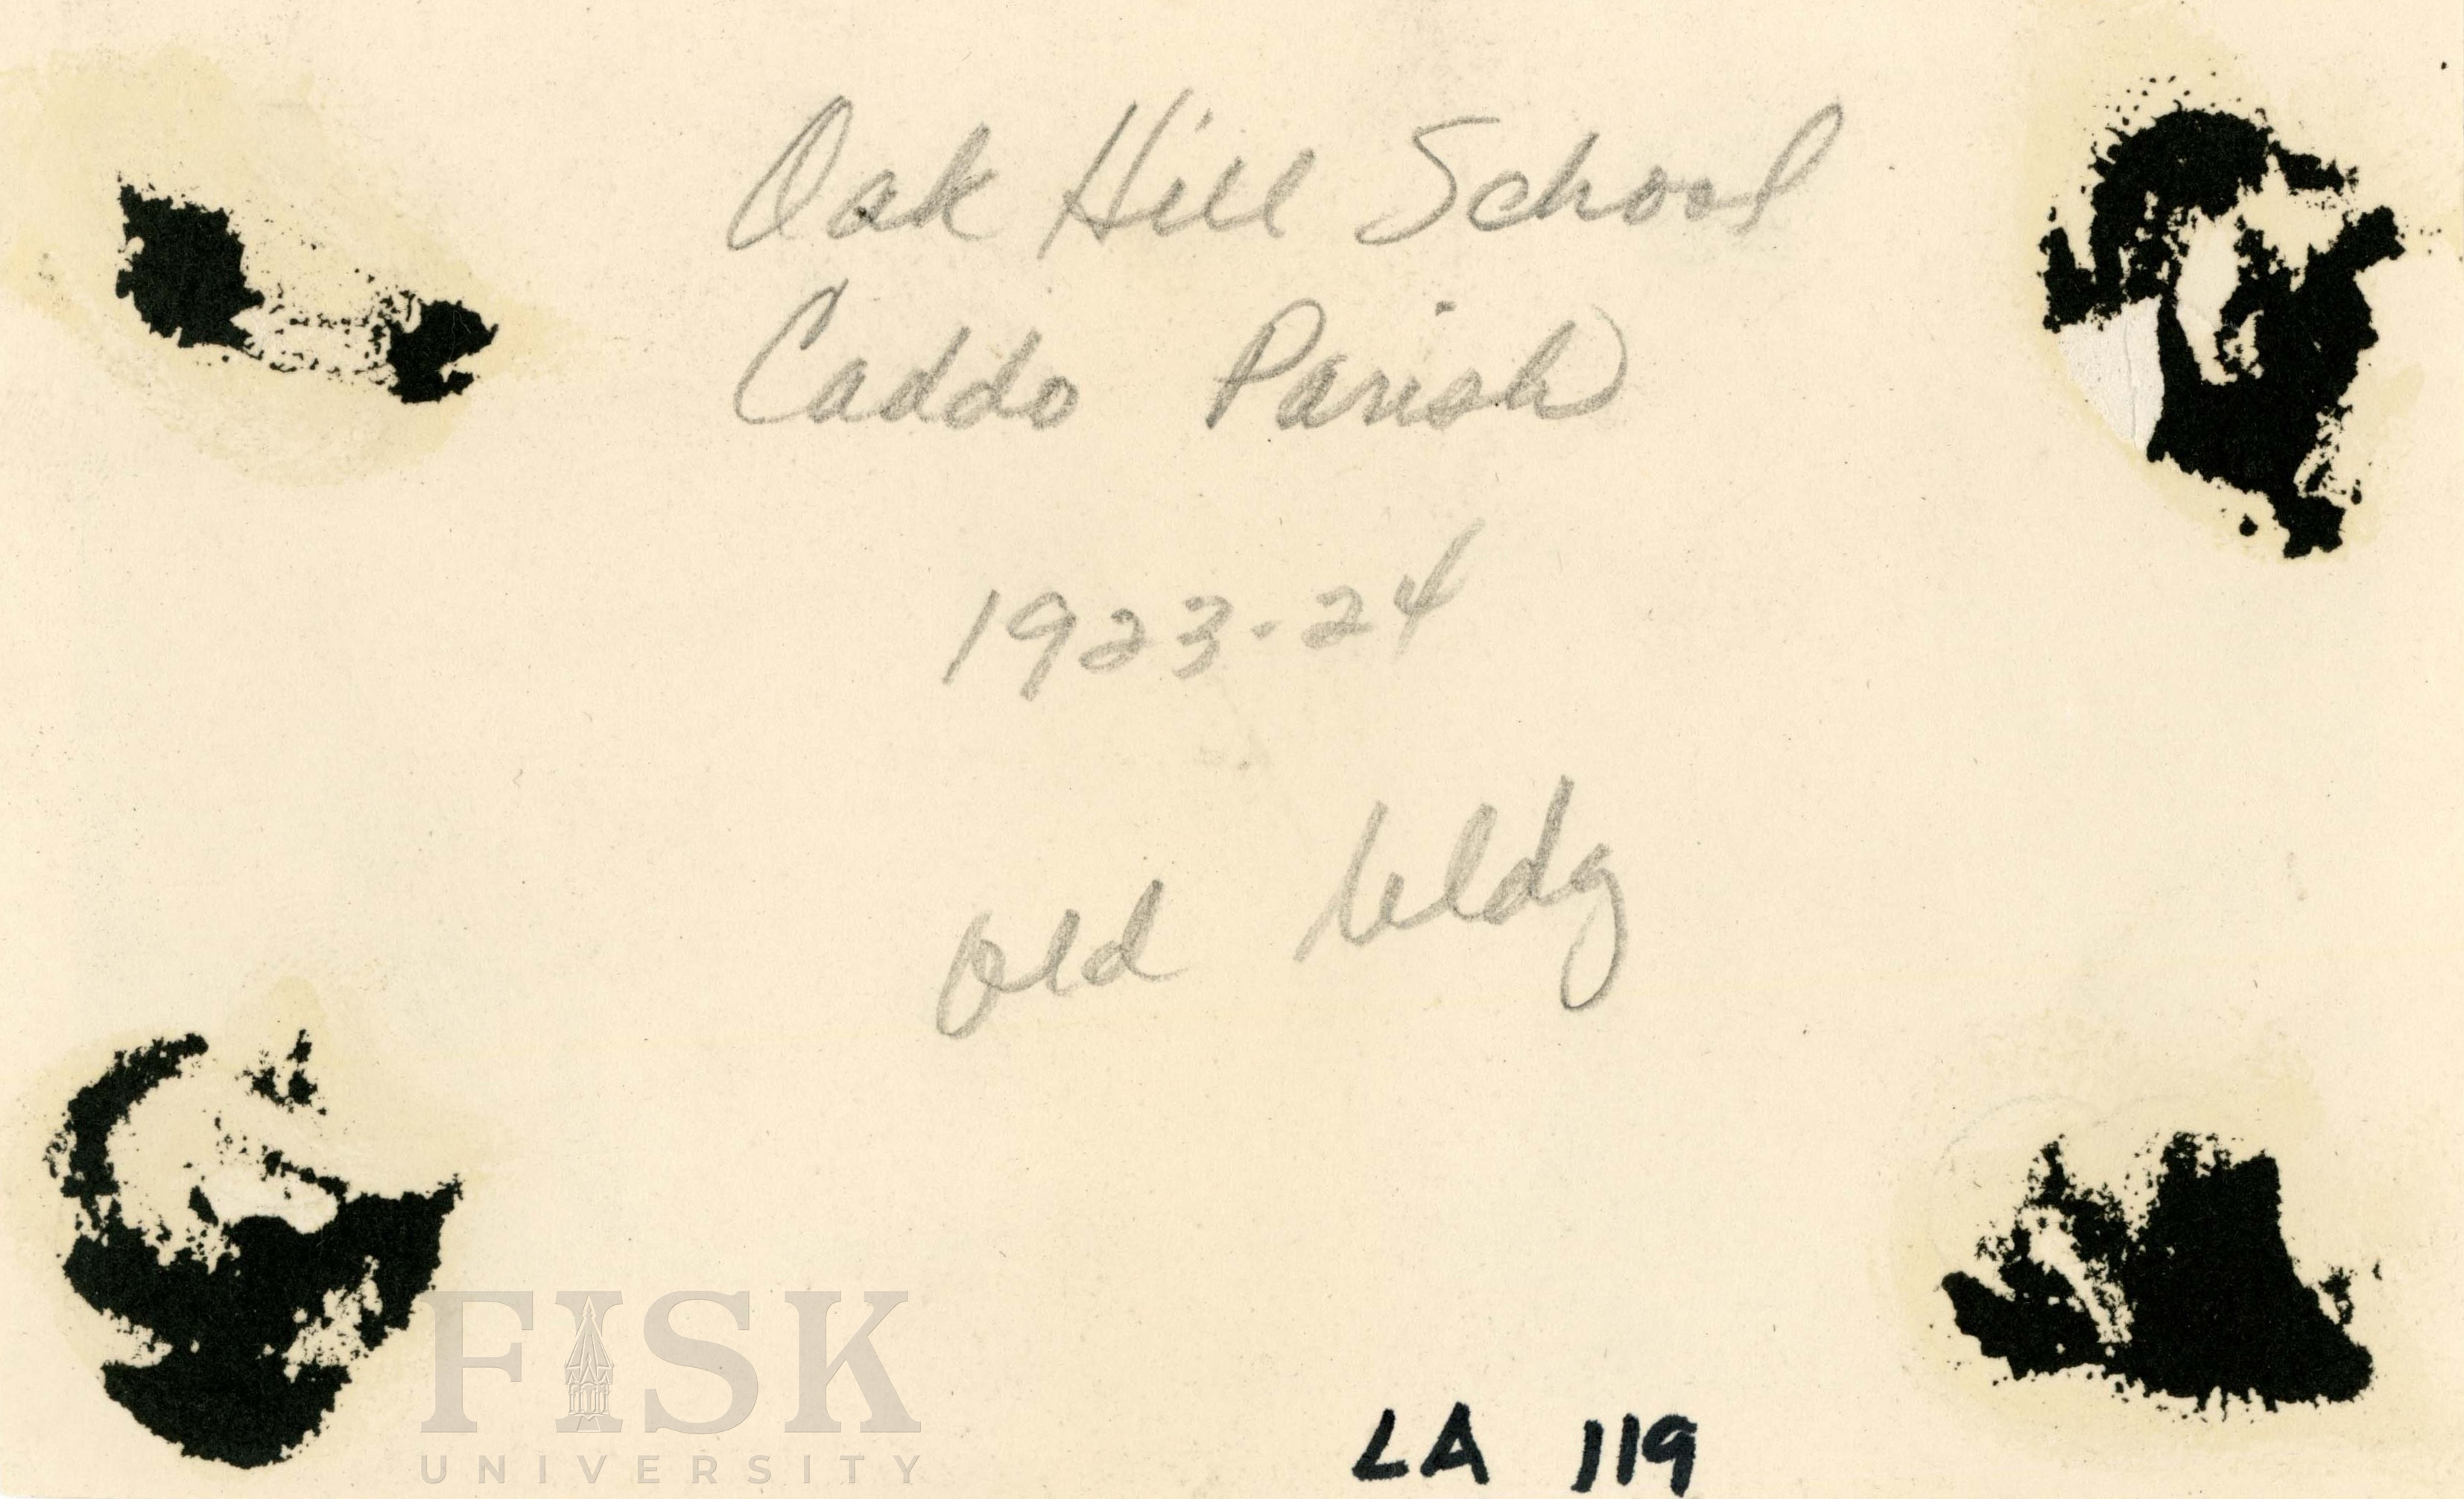 Oak Hill School
Caddo Parish
1923-24
old bldg
FISK
UNIVERSITY
LA 119